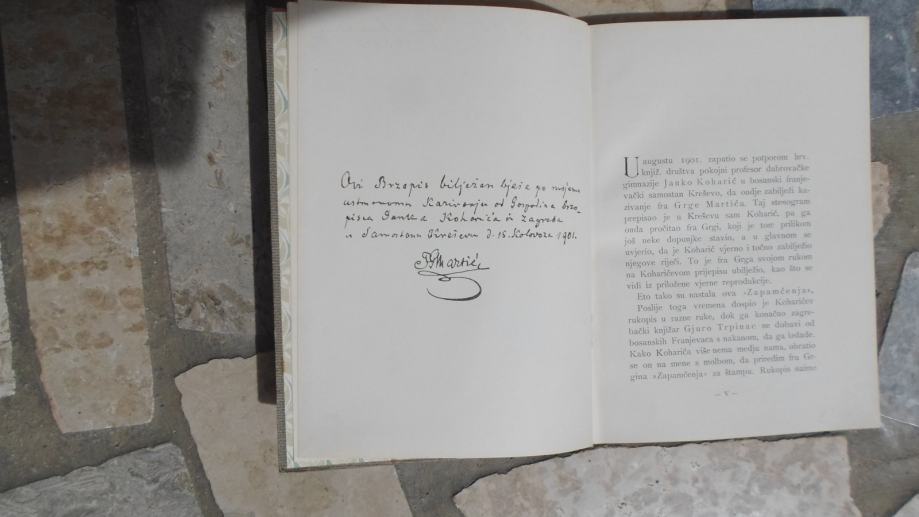 Ovi Brzopis bilježan bješe po mojemu
ustmenomu Kazivanju od Gospodina brzo-
pisca Janka Koharića iz Zagreba
u Samostanu Kreševu d. 15. Kolovoza 1901.
Martić
U augustu 1901. zaputio se potporom hrv.
knjiž. društva pokojni profesor dubrovačke
gimnazije Janko Koharić u bosanski franje-
vački samostan Kreševo, da ondje zabilježi ka-
zivanje fra Grge Martića. Taj stesogram
prepisao je u Kreševu sam Koharić, pa ga
onda pročitao fra Grgi, koji je tose prilikom
još neke dopunjke stavio, a u glavnom se
uvjerio, da je Koharić vjerno i točno zabilježio
njegove riječi. To je fra Grga svojom rukom
na Koharićevom prijepisu ubilježio, kao što se
vidi iz priložene vjerne reprodukcije.
Eto tako su nastala ova »Zapamćenja«,
Poslije toga vremena dospio je Koharićev
rukopis u razne ruke, dok ga konačno zagre-
bački knjižar Gjuro Trpinac ne dobavi od
bosanskih Franjevaca s nakanom, da ga izdade.
Kako Koharića više nema medju nama, obratio
se on na mene s molbom, da priredim fra Gr-
gina »Zapamćenja« za štampu. Rukopis naime
— V —